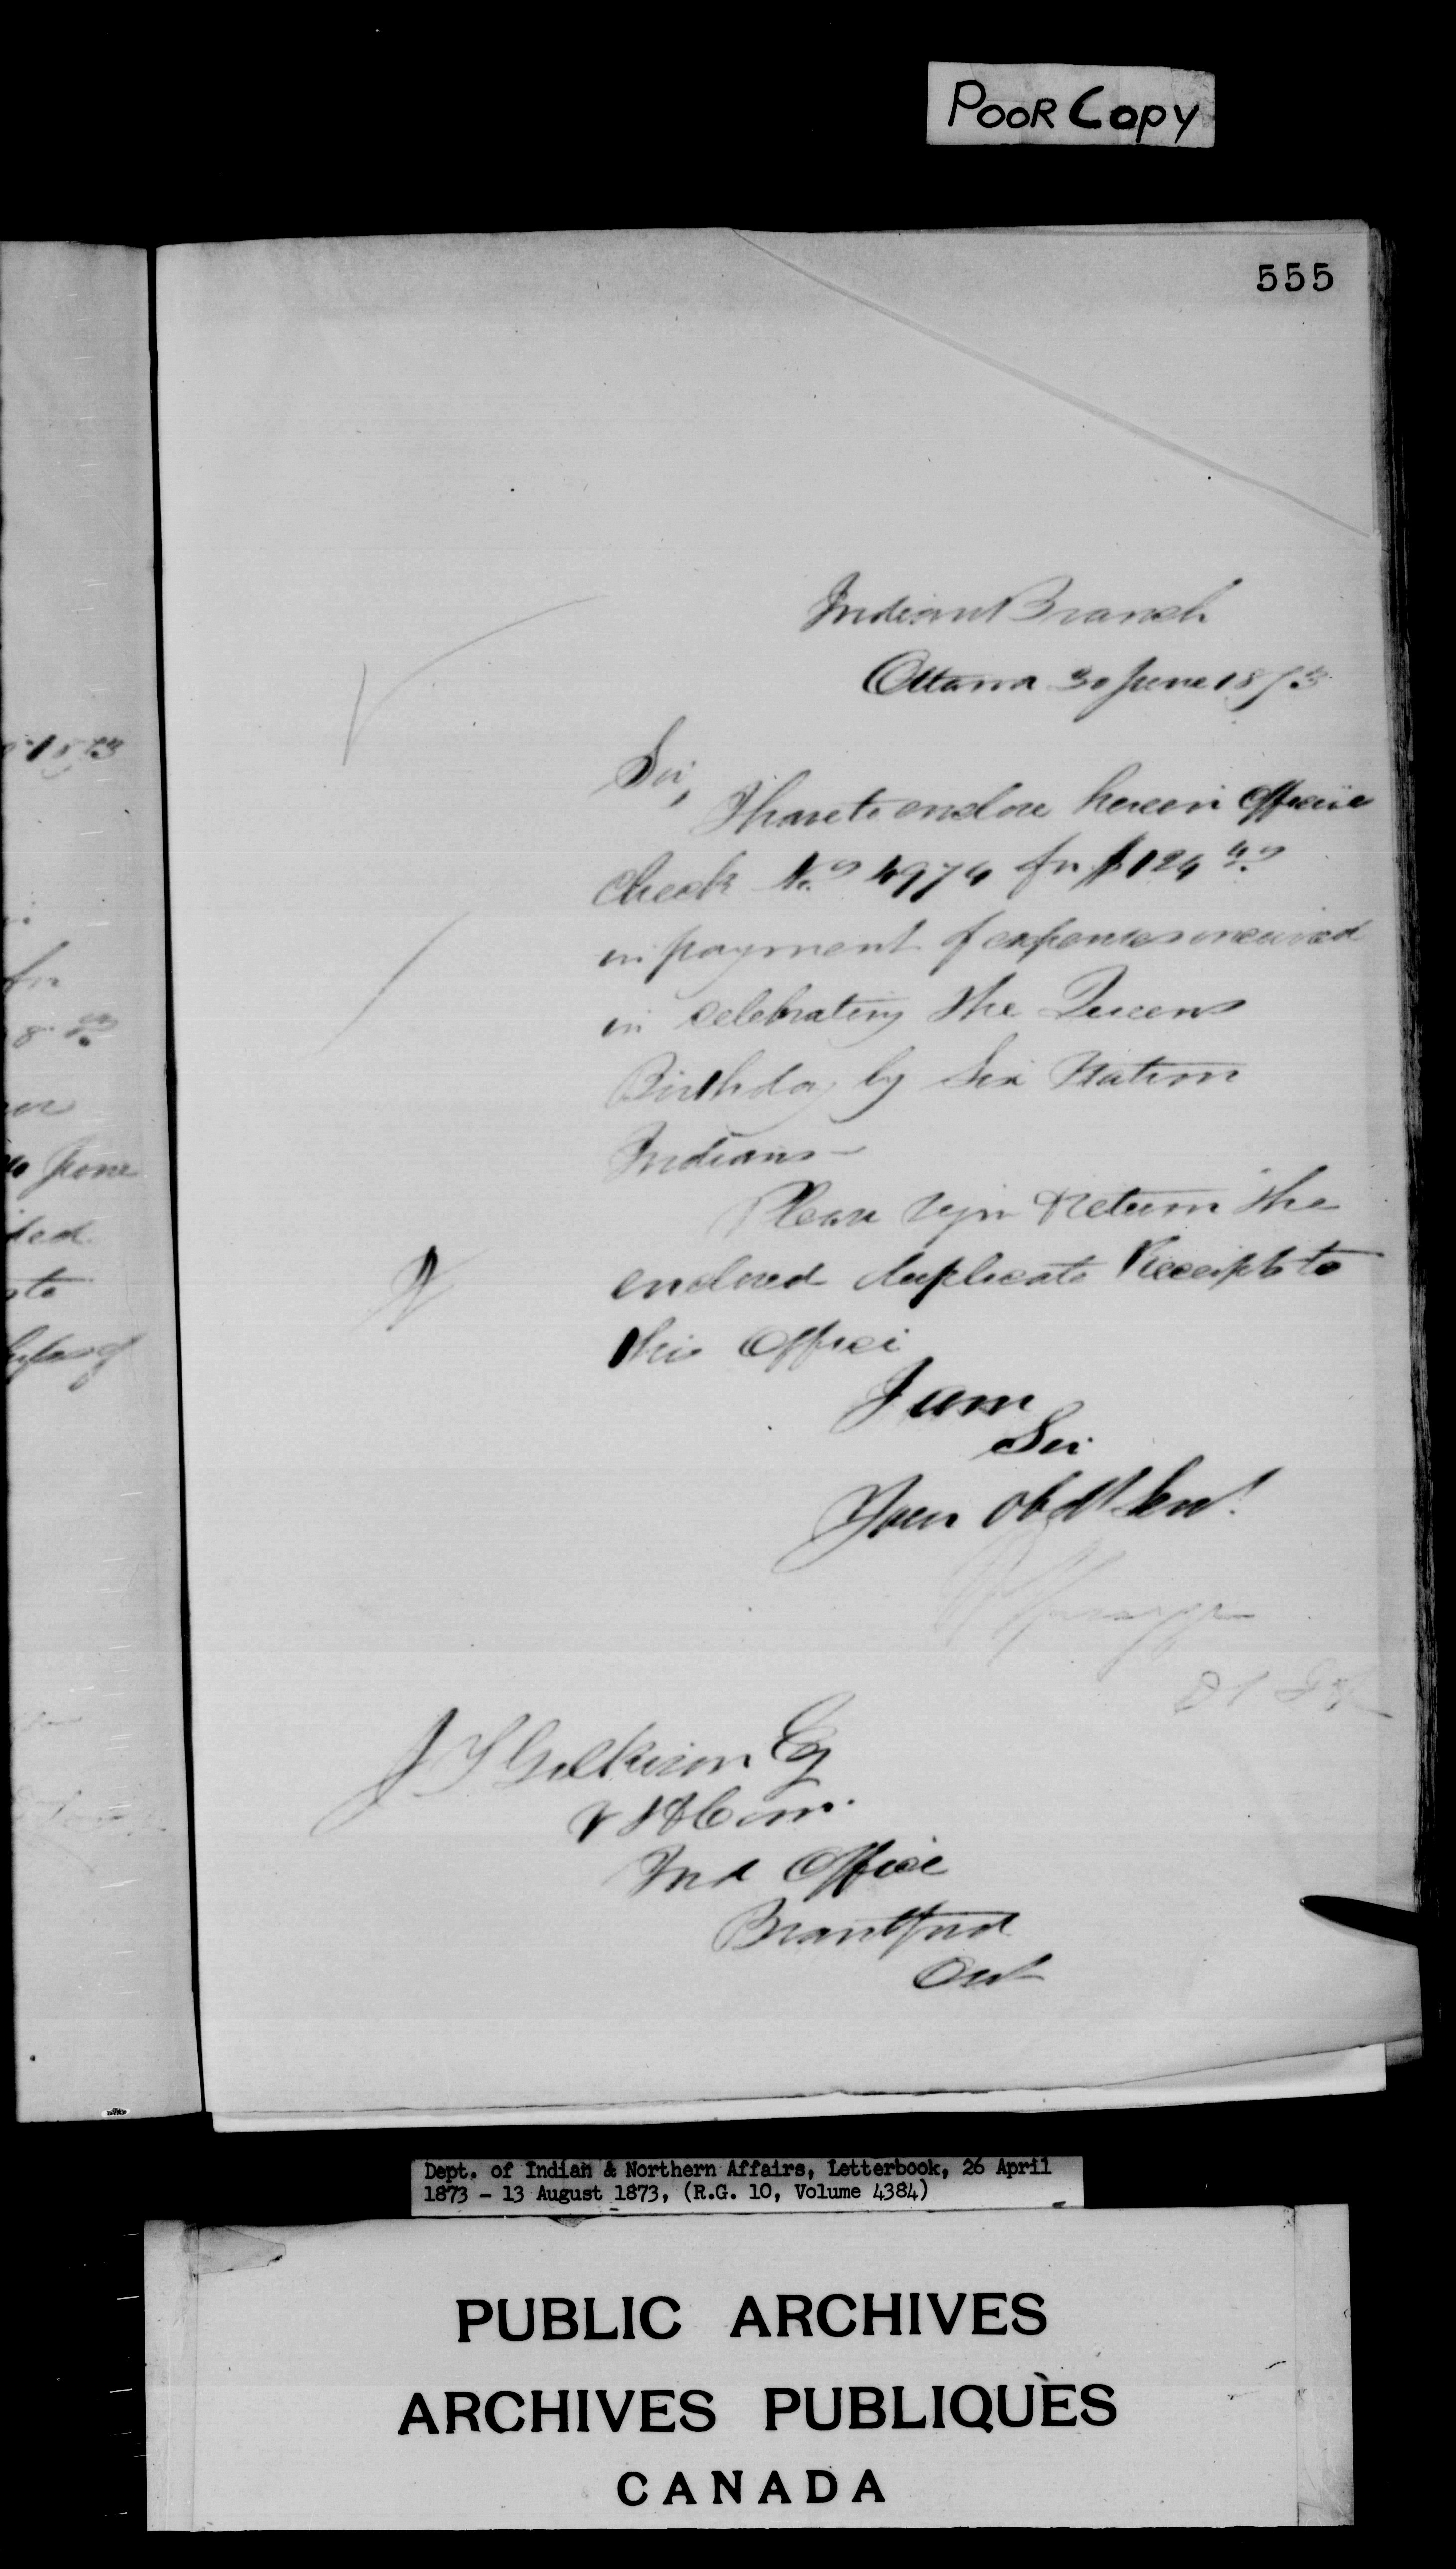 POOR Copy
555
Indian Branch
Ottawa 30 June 1873
Sir,
I have to enclose herein Official
Check No 4974 for $124
in payment of expenses incurred
in celebrating the Queens
Birthday by Six Nation
Indians –
Please sign & return the
enclosed duplicate Receipts to
this Office
I am
Sir
Your obdt Servt
J T Gilkison Esq
V S & Com.
Ind Office
Brantford
Ont
1873
for
Dept. of Indian & Northern Affairs, Letterbook, 26 April
1873 - 13 August 1873, (R.G. 10, Volume 4384)
PUBLIC ARCHIVES
ARCHIVES PUBLIQUES
CANADA